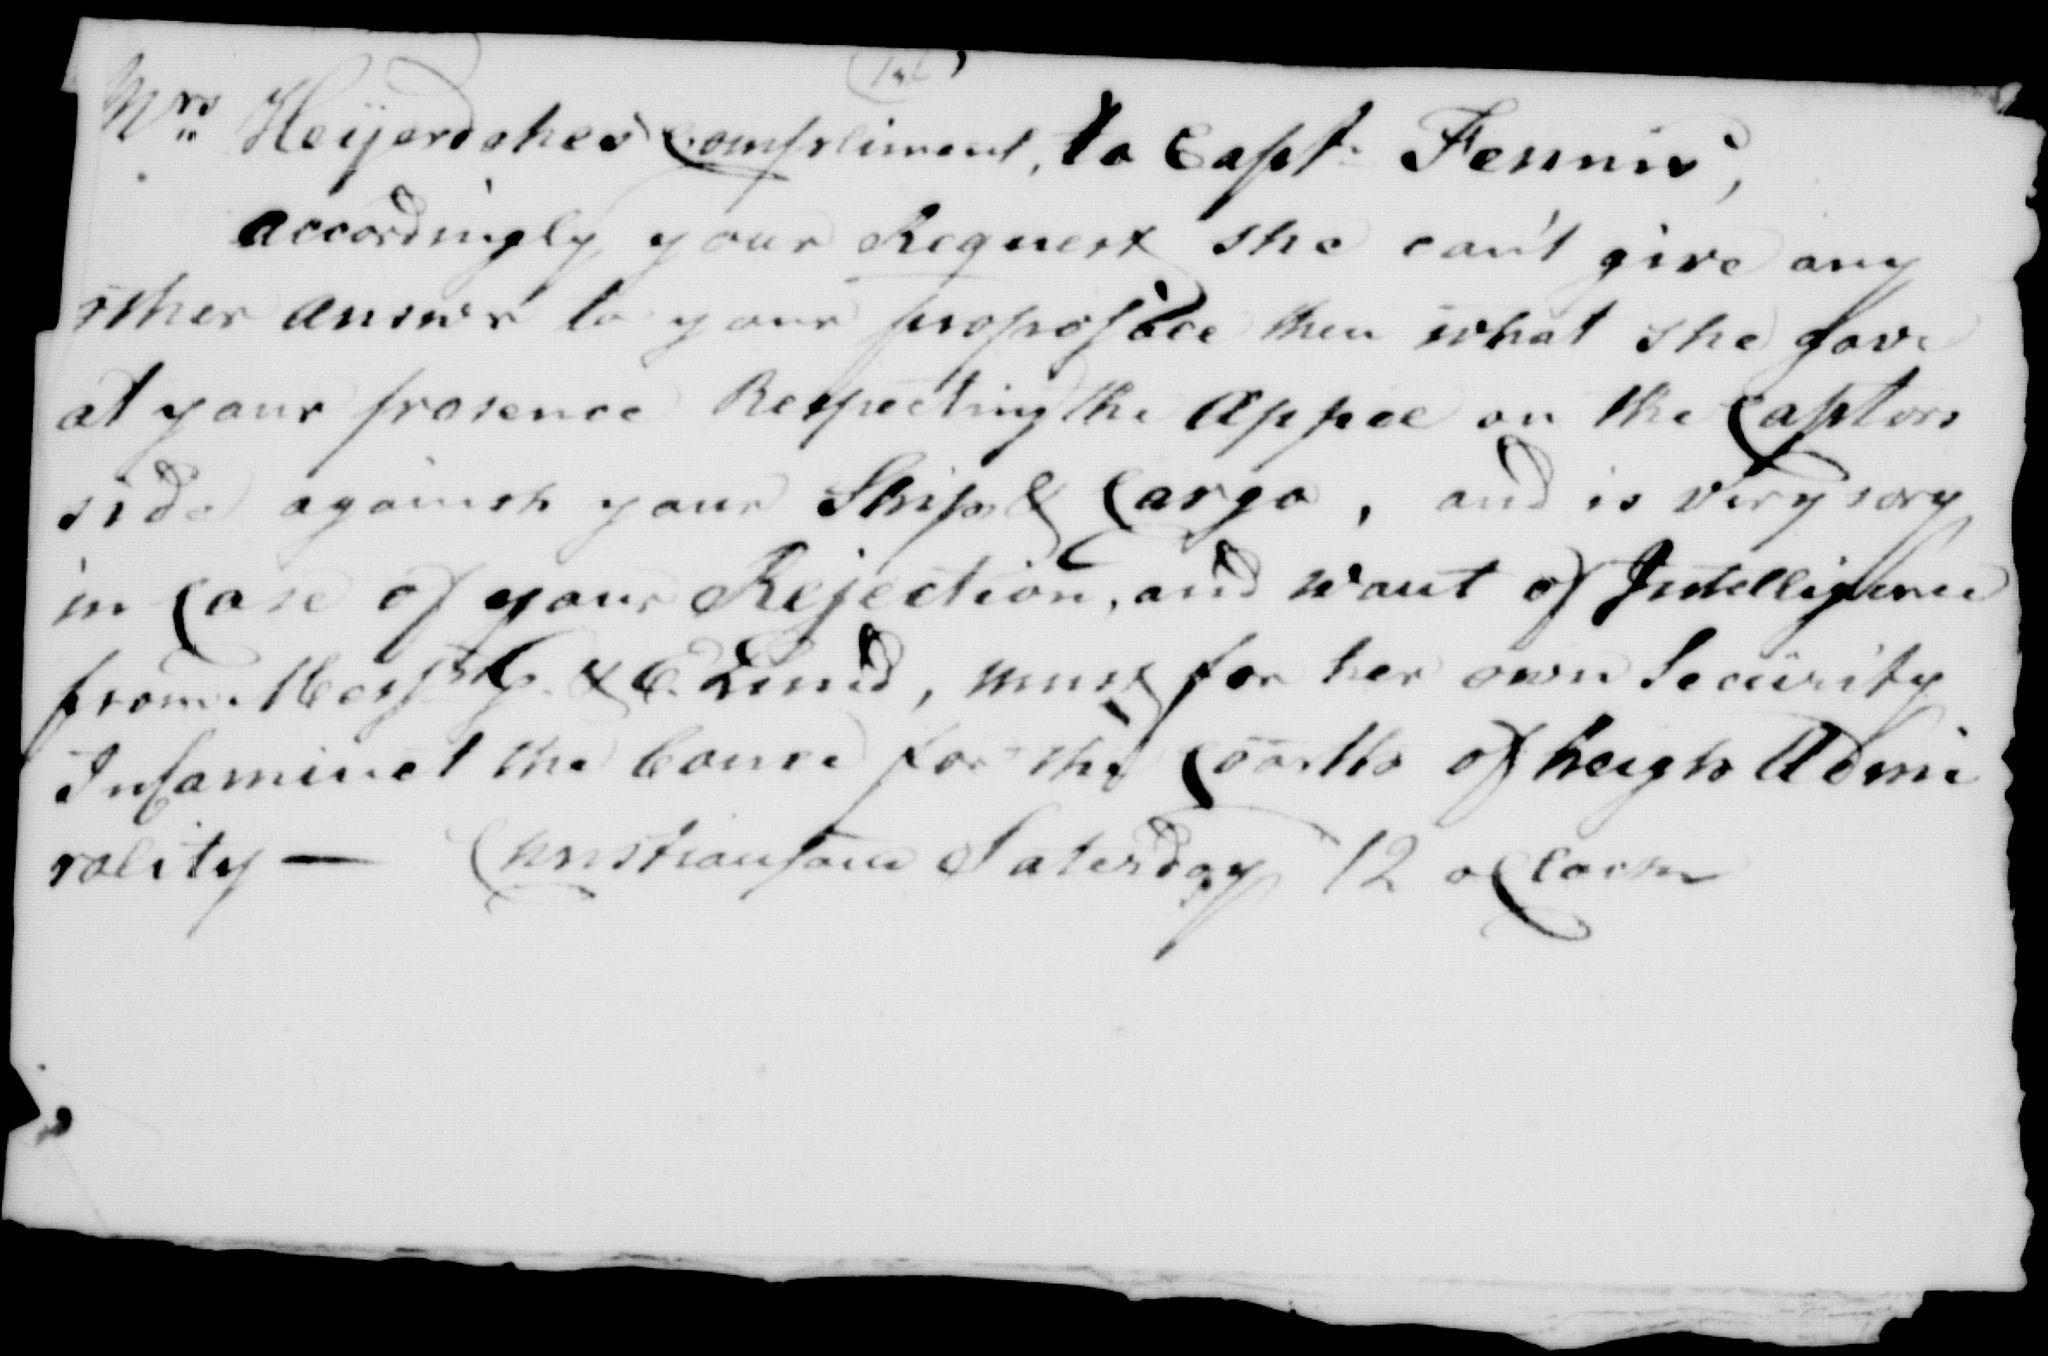 Mrs Heyerdahes Compliment, to Capt. Fennis,
accordingly your Request she can't give any
other answr to your proposace then what she gave
at your prosence Respecting the appee on the Captors
side against your Ship & Cargo, and is very sory
in Case of your Rejection, and want of Intelligence
from Messrs G. & C. Lund, must for her own Security
the Couse for the Courtts of heigh Admi
rality — Christiansand Saterday 12 oClock